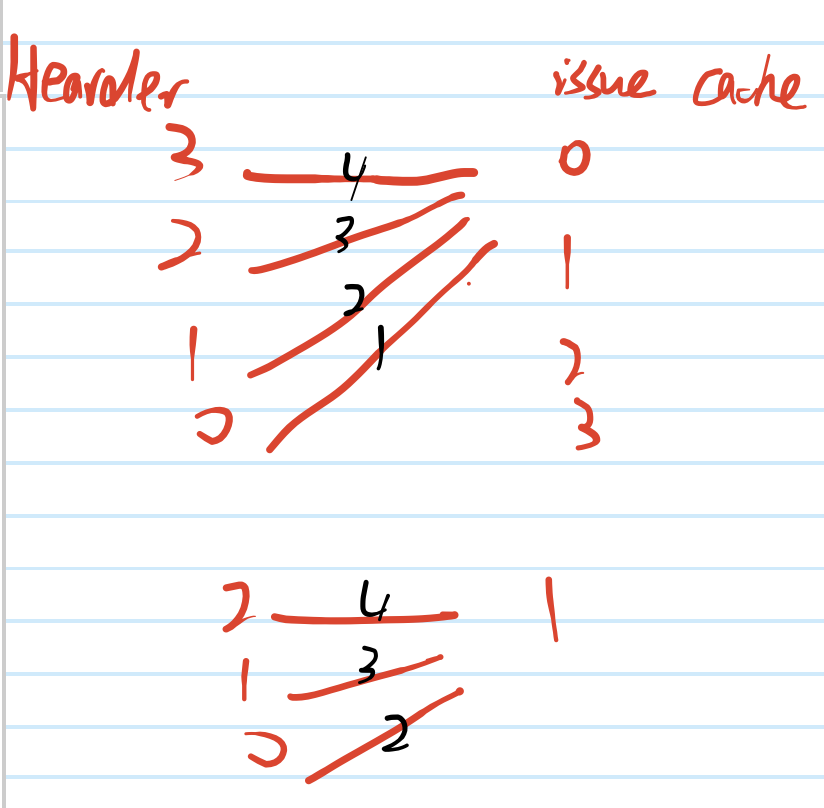 Hearder issue cache
3 4 0
2 3 1
1 2 2
0 1 3
2 4 1
1 3
0 2